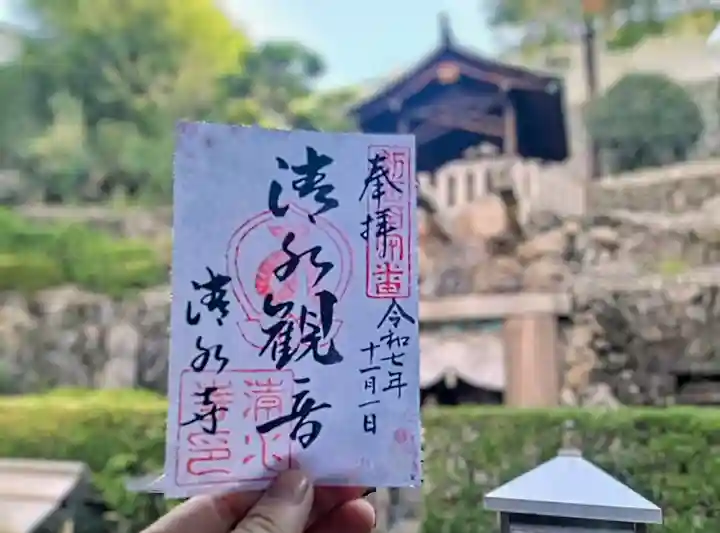 奉拝
令和七年
十一月一日
清水観音
清水寺